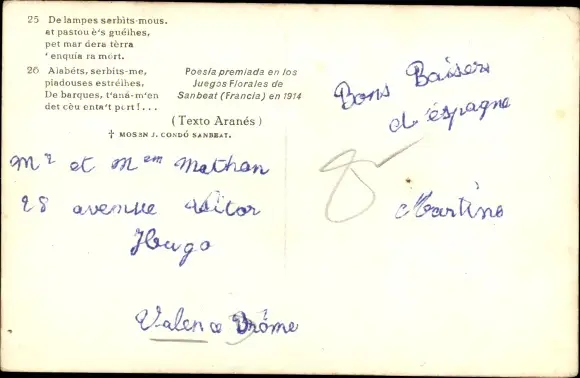 25 De lampes serbits-mous.
at pastou è's guéihes,
pet mar dera tèrra
'enquia ra mort.
26 Aiabéts, serbits-me,
piadouses estréihes,
De barques, t'aná-m'en
det cèu enta't port!...
Poesía premiada en los
Juegos Florales de
Sanbeat (Francia) en 1914
(Texto Aranés)
† MOSEN J. CONDÓ SANBEAT.
Bons Baisers
d'éspagne
Martine
Mr et Mem Mathan
28 avenue Victor
Hugo
Valence Drôme